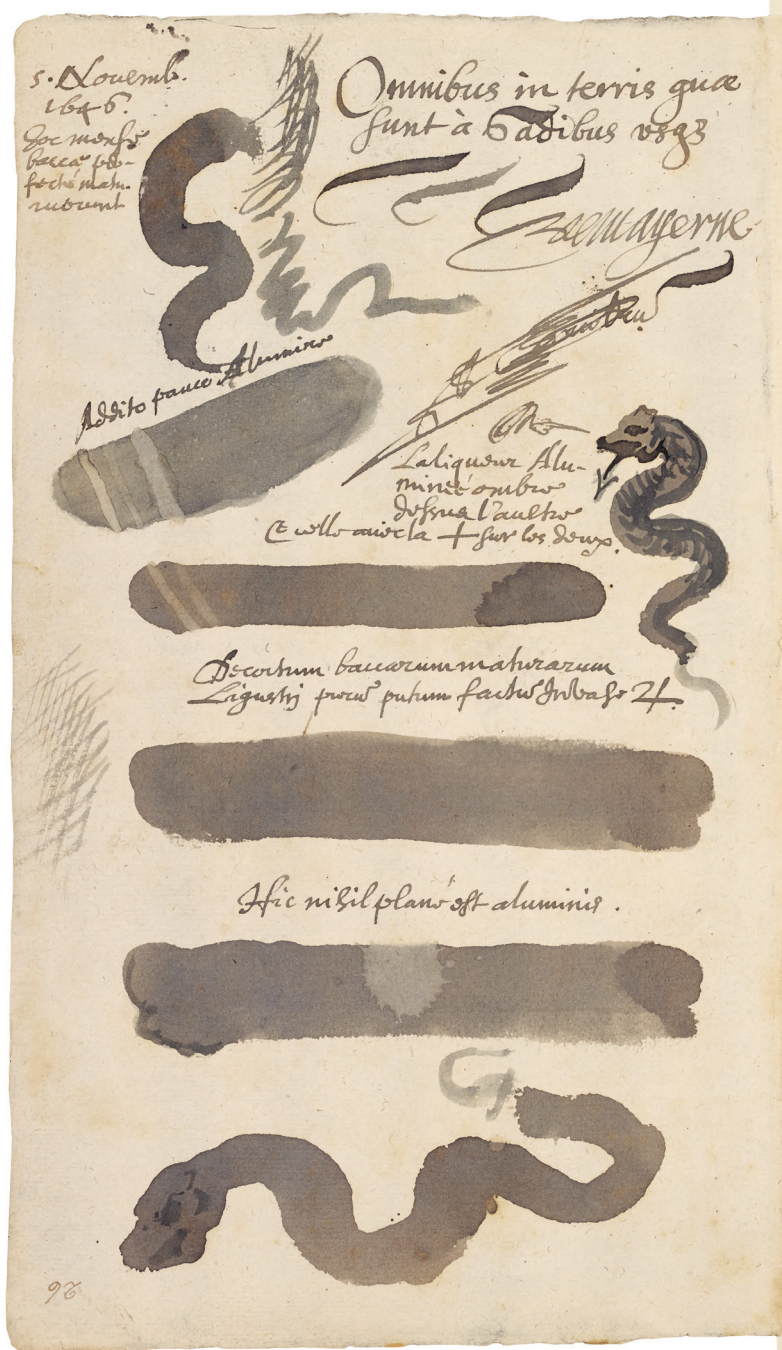 5. Novemb.
1646.
hoc mense
baccae per-
fectè matu-
ruerunt
Omnibus in terris quae
sunt à Gadibus usqȝ
Demayerne
Addito pauco Alumine
La liqueur Alu-
minée ombre
dessus l'aultre
Et celle avec la + sur les deux.
Decoctum baccarum maturarum
Ligustri purū putum factū In vase ♃.
Hic nihil planè est aluminis.